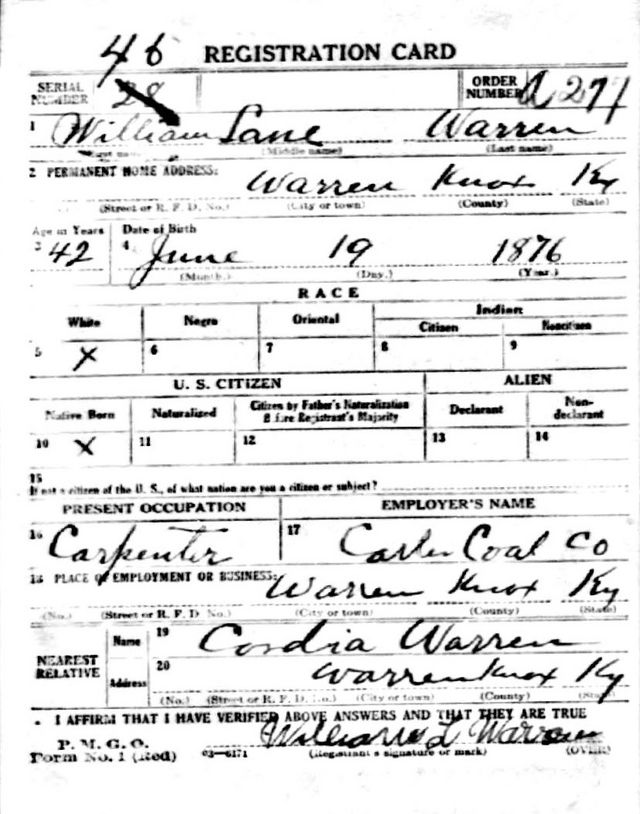 46 REGISTRATION CARD
SERIAL NUMBER 28 ORDER NUMBER A 2771
1 William Lane Warren
(First name) (Middle name) (Last name)
2 PERMANENT HOME ADDRESS:
Warren Knox Ky
(Street or R. F. D. No.) (City or town) (County) (State)
Age in Years Date of Birth
3 42 4 June 19 1876
(Month.) (Day.) (Year.)
RACE
White Negro Oriental Indian
Citizen Noncitizen
5 X 6 7 8 9
U. S. CITIZEN ALIEN
Native Born Naturalized Citizen by Father's Naturalization Before Registrant's Majority Declarant Non-declarant
10 X 11 12 13 14
15
If not a citizen of the U. S., of what nation are you a citizen or subject?
PRESENT OCCUPATION EMPLOYER'S NAME
16 Carpenter 17 Carter Coal Co
18 PLACE OF EMPLOYMENT OR BUSINESS:
Warren Knox Ky
(No.) (Street or R. F. D. No.) (City or town) (County) (State)
NEAREST RELATIVE Name 19 Cordia Warren
Address 20 Warren Knox Ky
(No.) (Street or R. F. D. No.) (City or town) (County) (State)
I AFFIRM THAT I HAVE VERIFIED ABOVE ANSWERS AND THAT THEY ARE TRUE
P. M. G. O.
Form No. 1 (Red) 03-6171 William L Warren
(Registrant's signature or mark) (OVER)